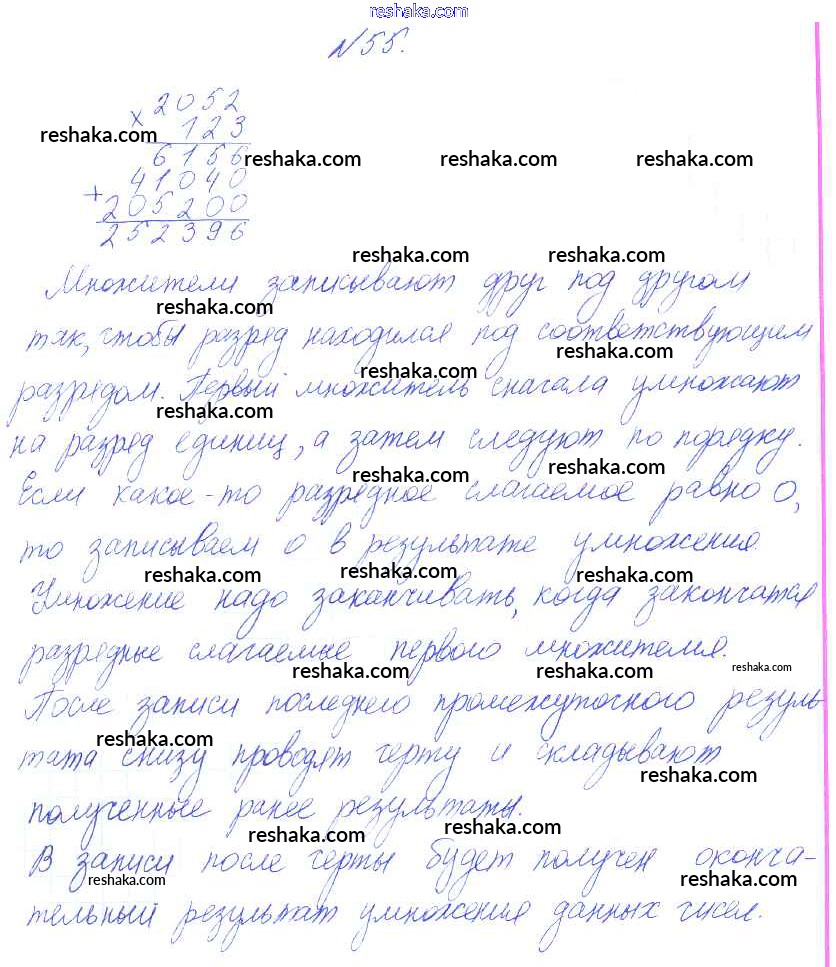 reshaka.com
№55.
2052
× 123
reshaka.com
6156
reshaka.com
reshaka.com
41040
+
205200
252396
reshaka.com
reshaka.com
Множители записывают друг под другом
reshaka.com
так, чтобы разряд находился под соответствующим
reshaka.com
reshaka.com
разрядом. Первый множитель сначала умножают
reshaka.com
на разряд единиц, а затем следуют по порядку.
reshaka.com
reshaka.com
Если какое-то разрядное слагаемое равно 0,
то записываем 0 в результате умножения.
reshaka.com
reshaka.com
reshaka.com
Умножение надо заканчивать, когда закончатся
разрядные слагаемые первого множителя.
reshaka.com
reshaka.com
reshaka.com
После записи последнего промежуточного резуль-
reshaka.com
тата снизу проводят черту и складывают
reshaka.com
полученные ранее результаты.
reshaka.com
reshaka.com
В записи после черты будет получен оконча-
reshaka.com
reshaka.com
тельный результат умножения данных чисел.